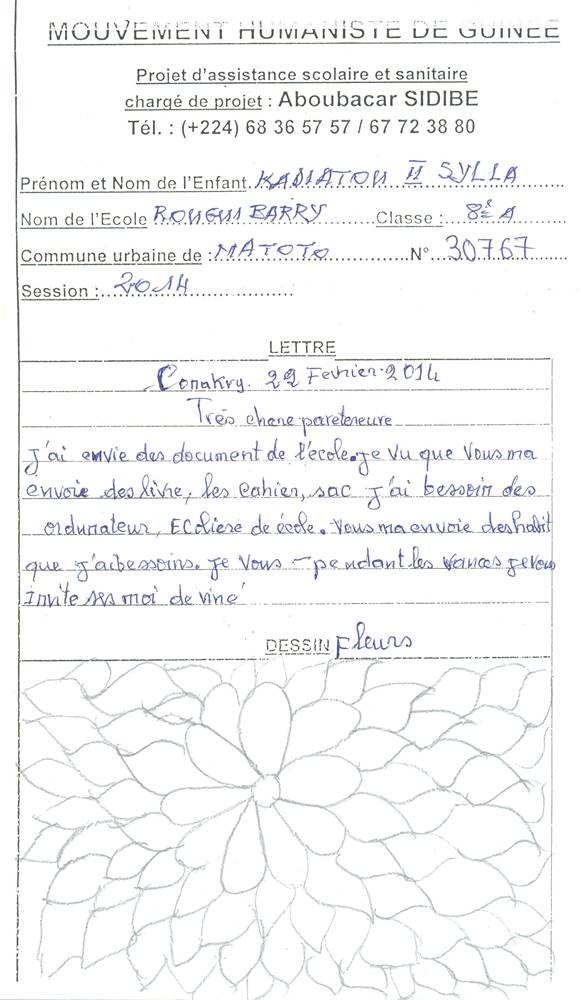 MOUVEMENT HUMANISTE DE GUINEE
Projet d'assistance scolaire et sanitaire
chargé de projet : Aboubacar SIDIBE
Tél. : (+224) 68 36 57 57 / 67 72 38 80
Prénom et Nom de l'Enfant. KADIATOU II SYLLA
Nom de l'Ecole ROUGUI BARRY Classe : 8è A
Commune urbaine de : MATOTO N° 30767
Session : 2014
LETTRE
Conakry. 22 Fevrier. 2014
Très chere pareteneure
J'ai envie des document de l'école. Je vu que vous ma
envoie des livre, les cahier, sac J'ai besoin des
ordunateur, EColiere de école. Vous ma envoie des habit
que J'ai besoins. Je vous - pendant les vances Je vous
invite moi de viné
DESSIN Fleurs